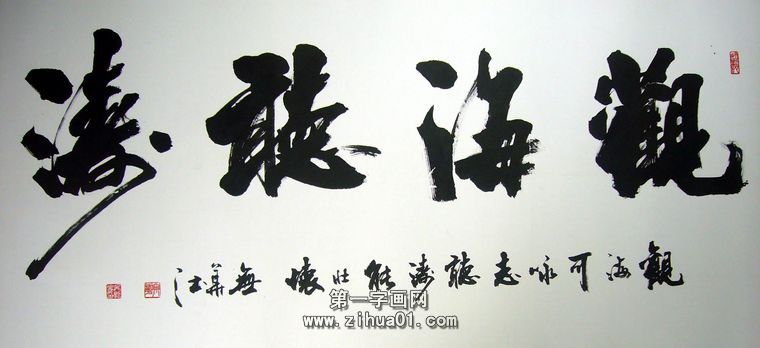 觀海聽濤
觀海可詠志聽濤能壯懷
第一字画网
www.zihua01.com